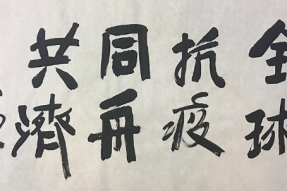 全球
抗疫
同舟
共濟